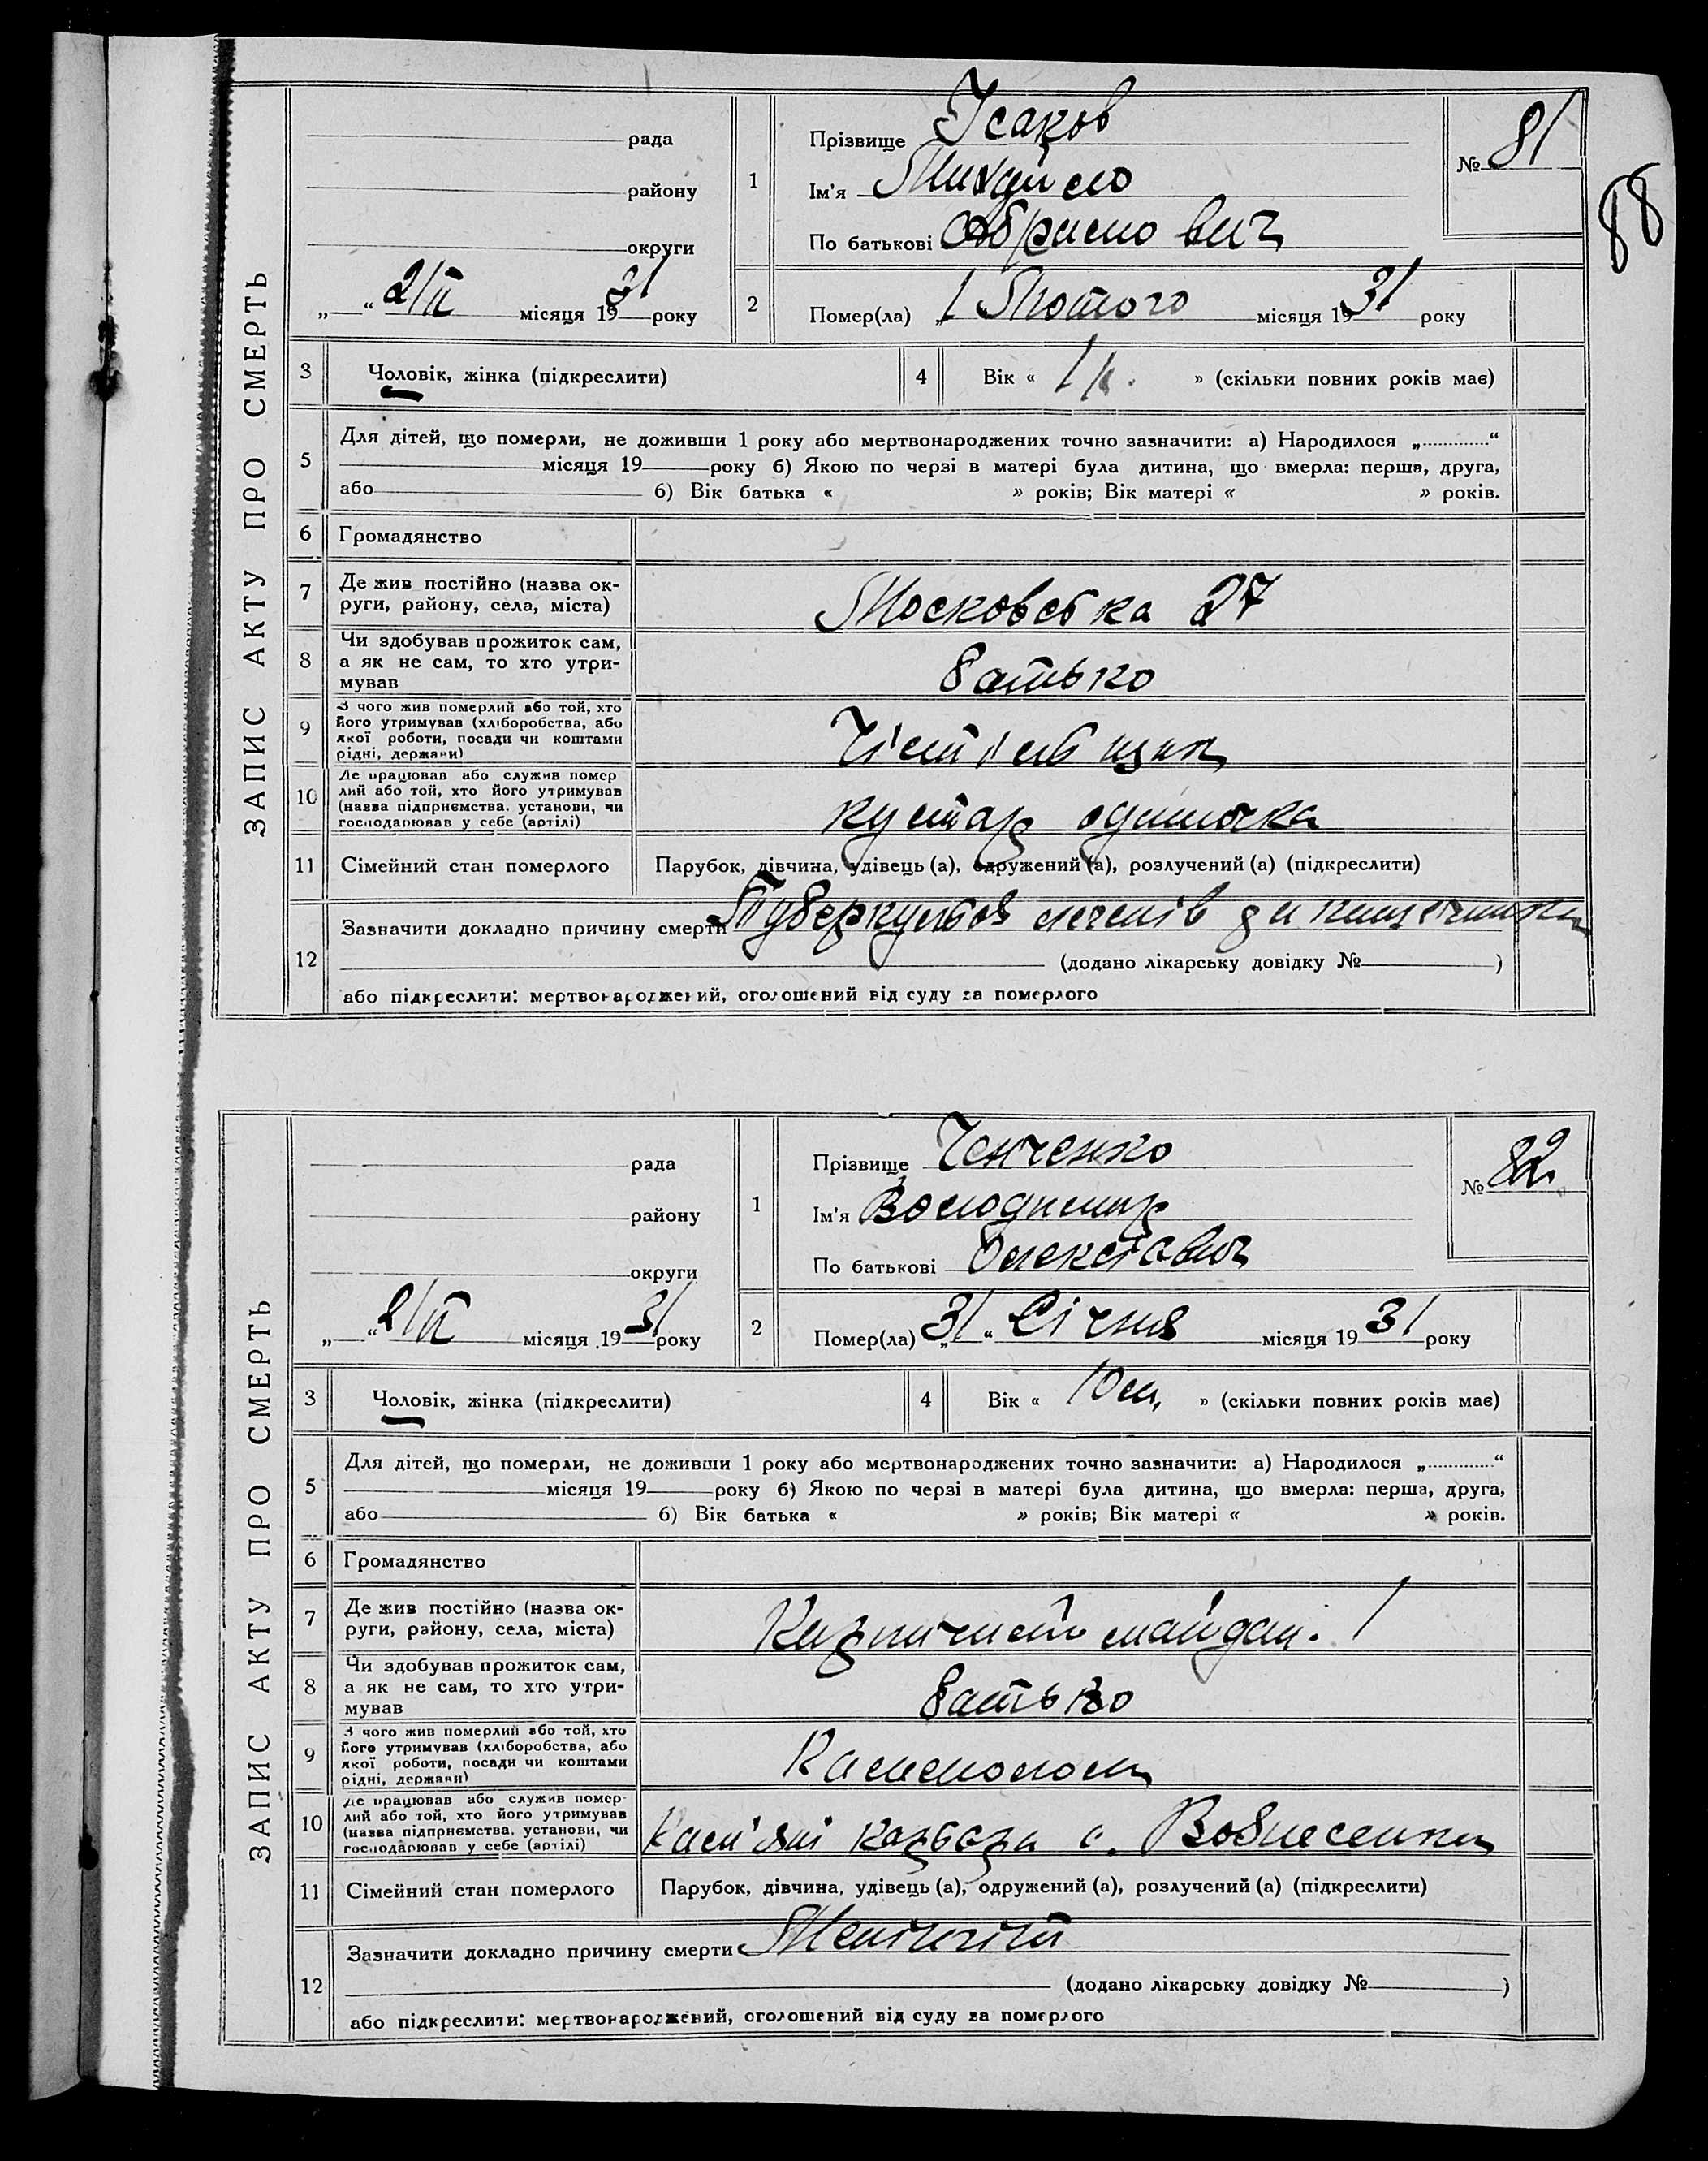 88
ЗАПИС АКТУ ПРО СМЕРТЬ
рада
району
округи
„ “ 2/II місяця 1931 року
1
Прізвище Ісаков
Ім'я Михайло
По батькові Абрамович
№ 81
2
Помер(ла) „1 Лютого місяця 1931 року
3
Чоловік, жінка (підкреслити)
4
Вік « 1 р. » (скільки повних років має)
5
Для дітей, що померли, не доживши 1 року або мертвонароджених точно зазначити: а) Народилося „ “
місяця 19 року б) Якою по черзі в матері була дитина, що вмерла: перша, друга,
або б) Вік батька « » років; Вік матері « » років.
6
Громадянство
7
Де жив постійно (назва ок-
руги, району, села, міста)
Московська 27
8
Чи здобував прожиток сам,
а як не сам, то хто утри-
мував
батько
9
З чого жив померлий або той, хто
його утримував (хліборобства, або
якої роботи, посади чи коштами
рідні, держави)
10
Де працював або служив помер
лий або той, хто його утримував
(назва підприємства, установи, чи
господарював у себе (артілі)
кустар одиночка
11
Сімейний стан померлого
Парубок, дівчина, удівець (а), одружений (а), розлучений (а) (підкреслити)
12
Зазначити докладно причину смерти Туберкульоз легенів
(додано лікарську довідку № )
або підкреслити: мертвонароджений, оголошений від суду за померлого
ЗАПИС АКТУ ПРО СМЕРТЬ
рада
району
округи
„ “ 2/II місяця 1931 року
1
Прізвище Ченченко
Ім'я Володимир
По батькові
№ 82
2
Помер(ла) „31“ Січня місяця 1931 року
3
Чоловік, жінка (підкреслити)
4
Вік « 10 м. » (скільки повних років має)
5
Для дітей, що померли, не доживши 1 року або мертвонароджених точно зазначити: а) Народилося „ “
місяця 19 року б) Якою по черзі в матері була дитина, що вмерла: перша, друга,
або б) Вік батька « » років; Вік матері « » років.
6
Громадянство
7
Де жив постійно (назва ок-
руги, району, села, міста)
майдан. 1
8
Чи здобував прожиток сам,
а як не сам, то хто утри-
мував
батько
9
З чого жив померлий або той, хто
його утримував (хліборобства, або
якої роботи, посади чи коштами
рідні, держави)
Каменолом
10
Де працював або служив помер-
лий або той, хто його утримував
(назва підприємства, установи, чи
господарював у себе (артілі)
карьєра с. Вознесенка
11
Сімейний стан померлого
Парубок, дівчина, удівець (а), одружений (а), розлучений (а) (підкреслити)
12
Зазначити докладно причину смерти Менінгіт
(додано лікарську довідку № )
або підкреслити: мертвонароджений, оголошений від суду за померлого